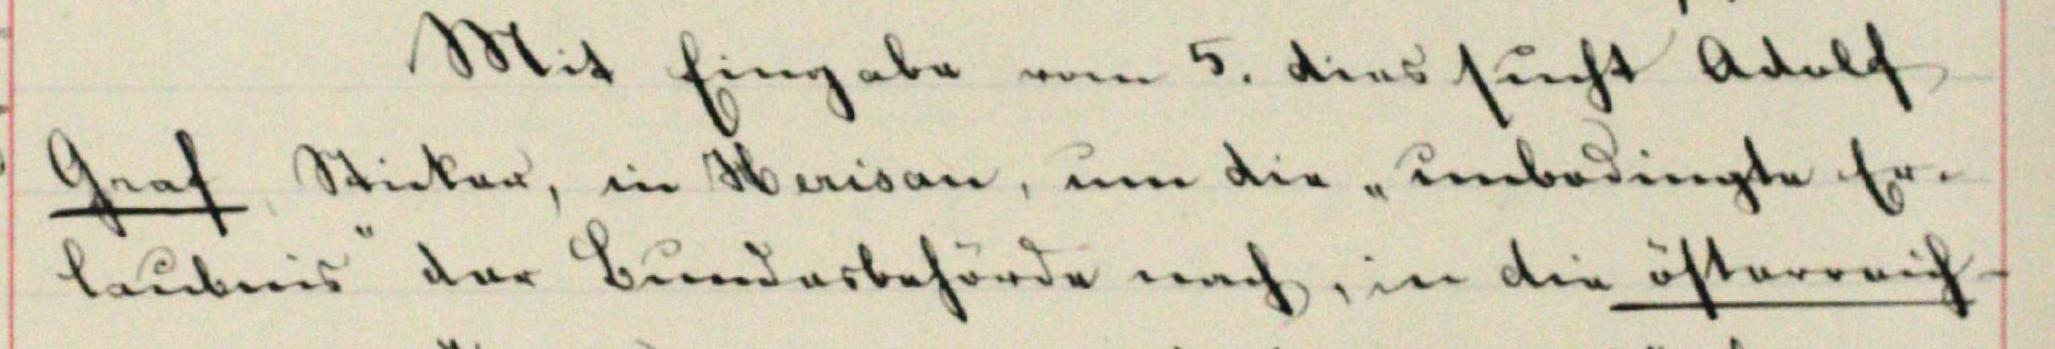 Mit Eingabe vom 5. dies sucht Adolf
Graf, Sticker, in Herisau, um die „unbedingte Er-
laubnis" der Bundesbehörde nach, in die österreich-